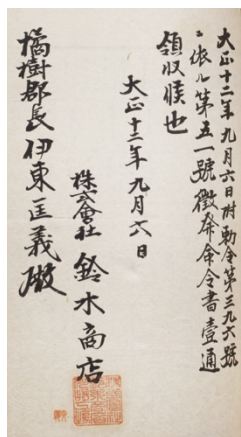 大正十二年九月六日附勅令第三九六號
ニ依ル第五一號徴発命令書壹通
領収候也
大正十二年九月六日
株式會社 鈴木商店
橘樹郡長伊東匡義殿